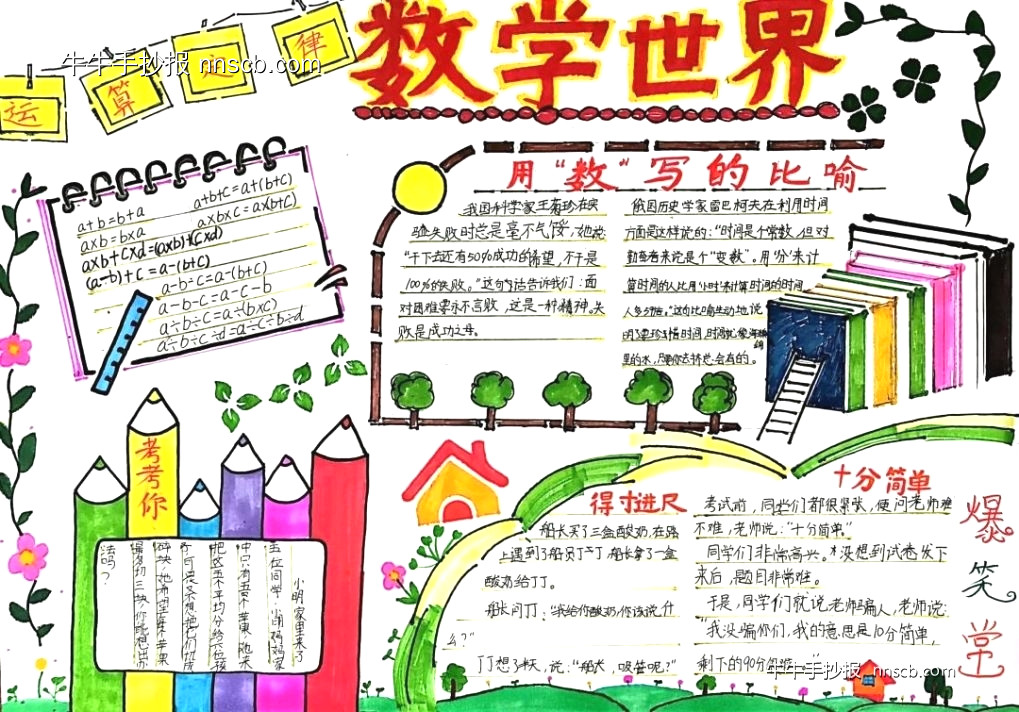 数学世界
运算律
牛牛手抄报 nnscb.com
a+b=b+a
a+b+c=a+(b+c)
a×b=b×a
a×b×c=a×(b×c)
a×b+c×d=(a×b)+(c×d)
(a-b)+c=a-(b+c)
a-b-c=a-(b+c)
a-b-c=a-c-b
a÷b÷c=a÷(b×c)
a÷b÷c÷d=a÷c÷b÷d
用“数”写的比喻
我国科学家王菊珍在实
验失败时总是毫不气馁，他说：
“干下去还有50%成功的希望，不干是
100%的失败。”这句话告诉我们：面
对困难要永不言败，这是一种精神。失
败是成功之母。
俄国历史学家雷巴柯夫在利用时间
方面是这样说的：“时间是个常数，但对
勤奋者来说是个“变数”。用‘分’来计
算时间的人比用‘小时’来计算时间的时间
里的水，只要你去挤总会有的。
考考你
小明家里来了
五位同学，小明妈妈家
中只有五个苹果，她来
把这五个平均分给六位孩
最多切三块，你能想出办
法吗？
得寸进尺
船长买了三盒酸奶，在路
上遇到了船员丁丁，船长拿了一盒
酸奶给丁丁。
船长问丁：“我给你酸奶你该说什
么？”
丁丁想了半天，说：“船长，吸管呢？”
十分简单
考试前，同学们都很紧张，便问老师难
不难，老师说：“十分简单。”
同学们非常高兴。没想到试卷发下
来后，题目非常难。
于是，同学们就说老师骗人，老师说：
“我没骗你们，我的意思是10分简单，
剩下的90分
爆笑堂
牛牛手抄报 nnscb.com